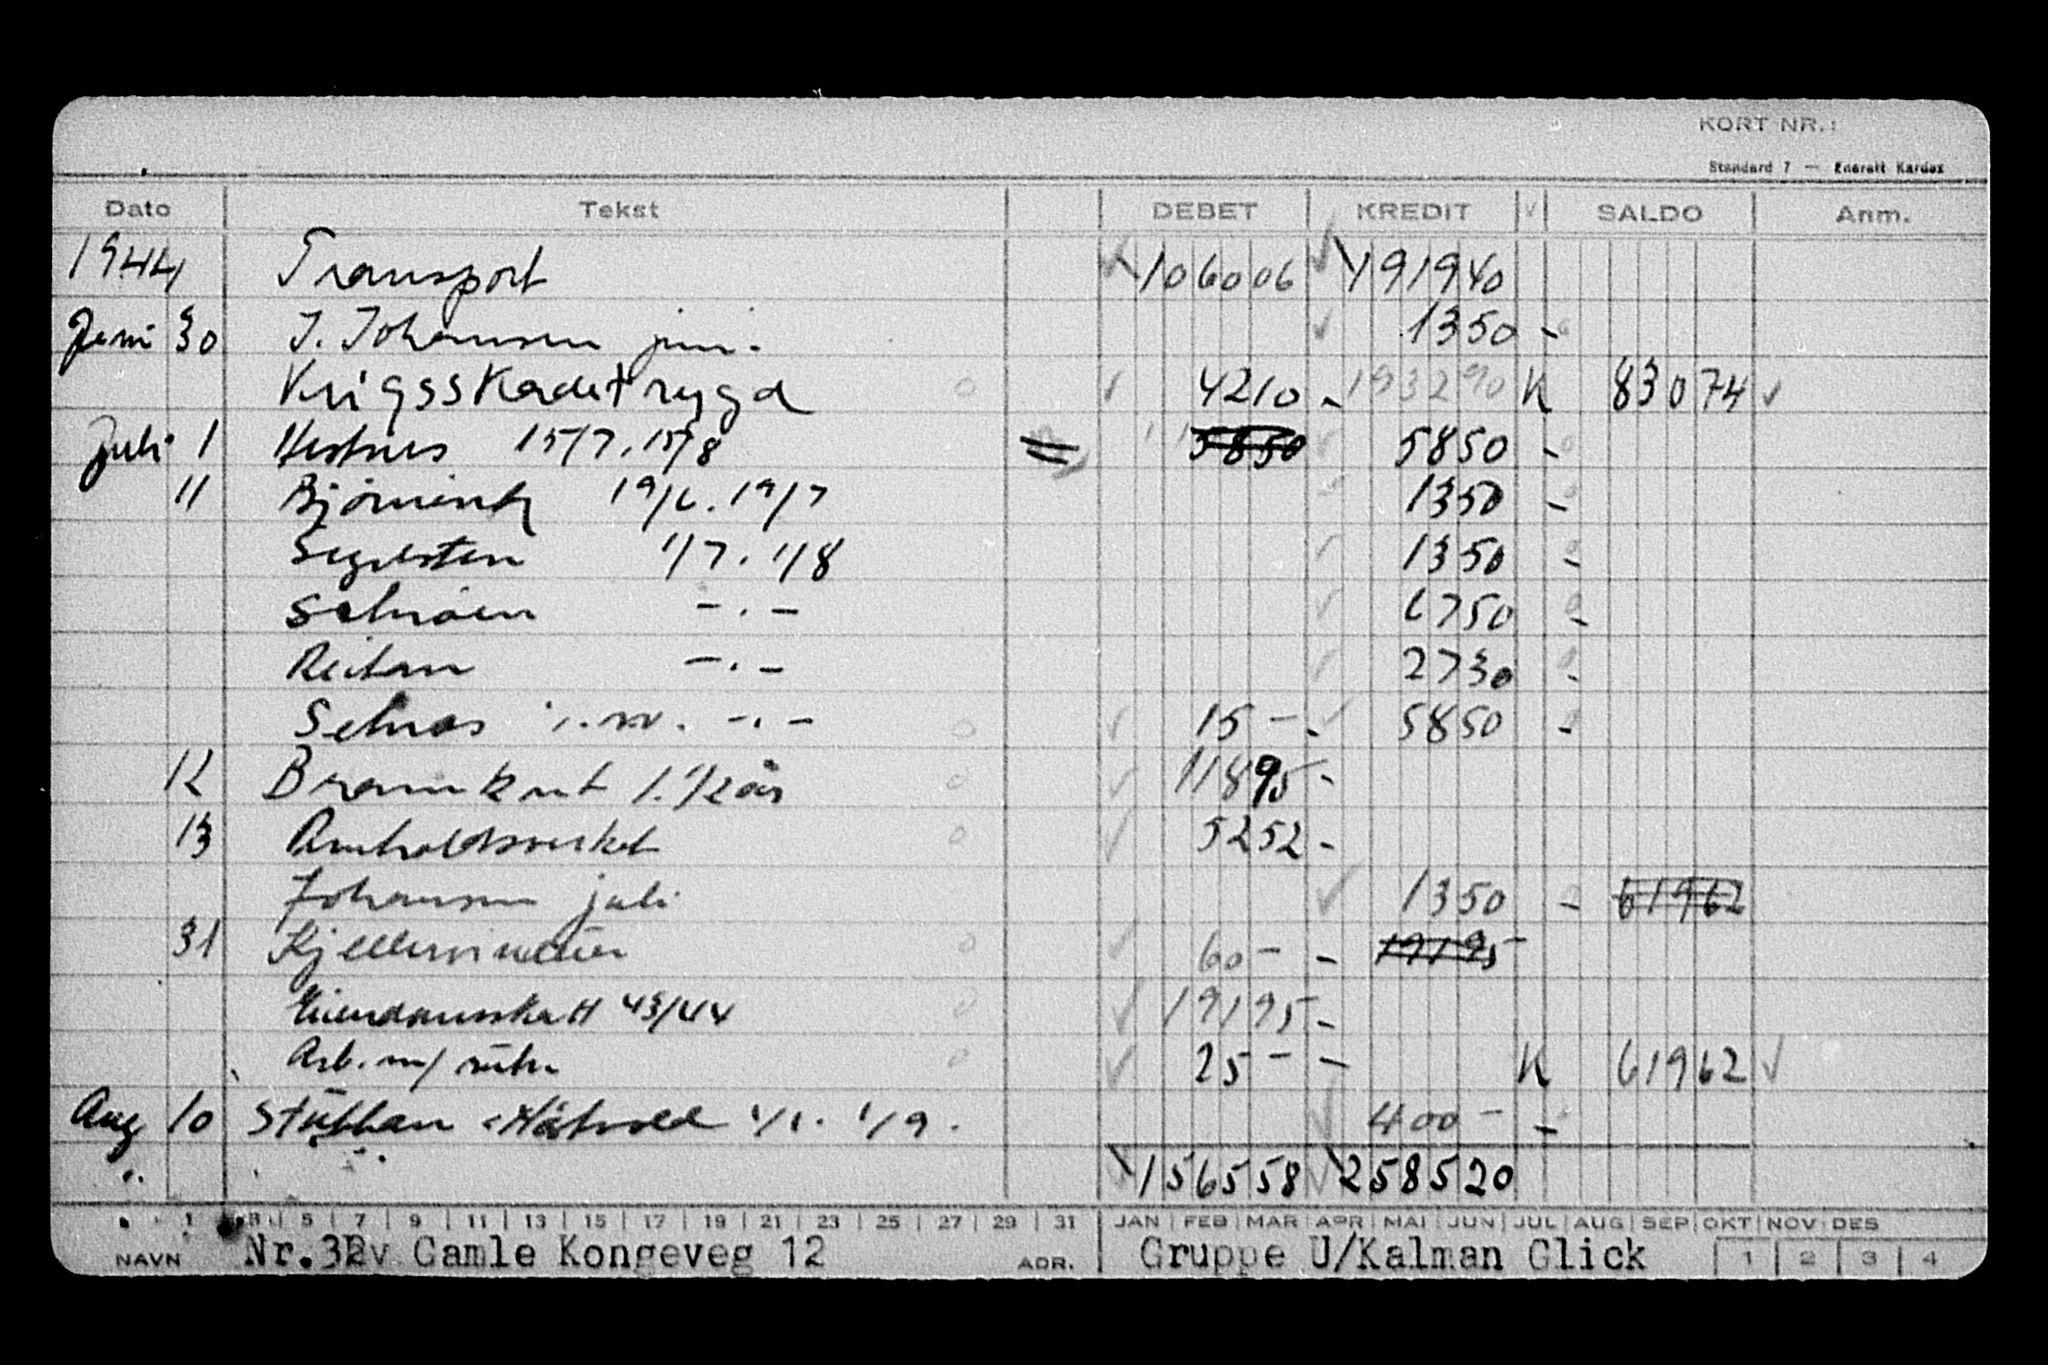 KORT NR.:
Standard 7 — Enerett Kardex
Dato Tekst DEBET KREDIT V SALDO Anm.
1944 Transport 106006 191940
Juni 30 J. Johansen juni. 1350 -
Krigsskadetrygd 4210 - 193290 K 83074
Juli 1 15/7. 15/8 = 5850 5850 -
11 19/6. 19/7 1350 -
1/7. 1/8 1350 -
-.- 6750 -
Reitan -.- 2730 -
Selnæs -.- 15 - - 5850 -
12 Brannkont 1. 1/2 år 11895 -
13 Renholdsverket 5252 -
Johansen juli 1350 - 61962
31 60 - - 19195
Eiendomsskatt 43/44 19195 -
Arb. m/ 25 - - K 61962
Aug 10 1/9. 400 - -
156558 258520
1 3 5 7 9 11 13 15 17 19 21 23 25 27 29 31 JAN FEB MAR APR MAI JUN JUL AUG SEP OKT NOV DES
NAVN Nr.32v Gamle Kongeveg 12 ADR. Gruppe U/Kalman Glick 1 2 3 4